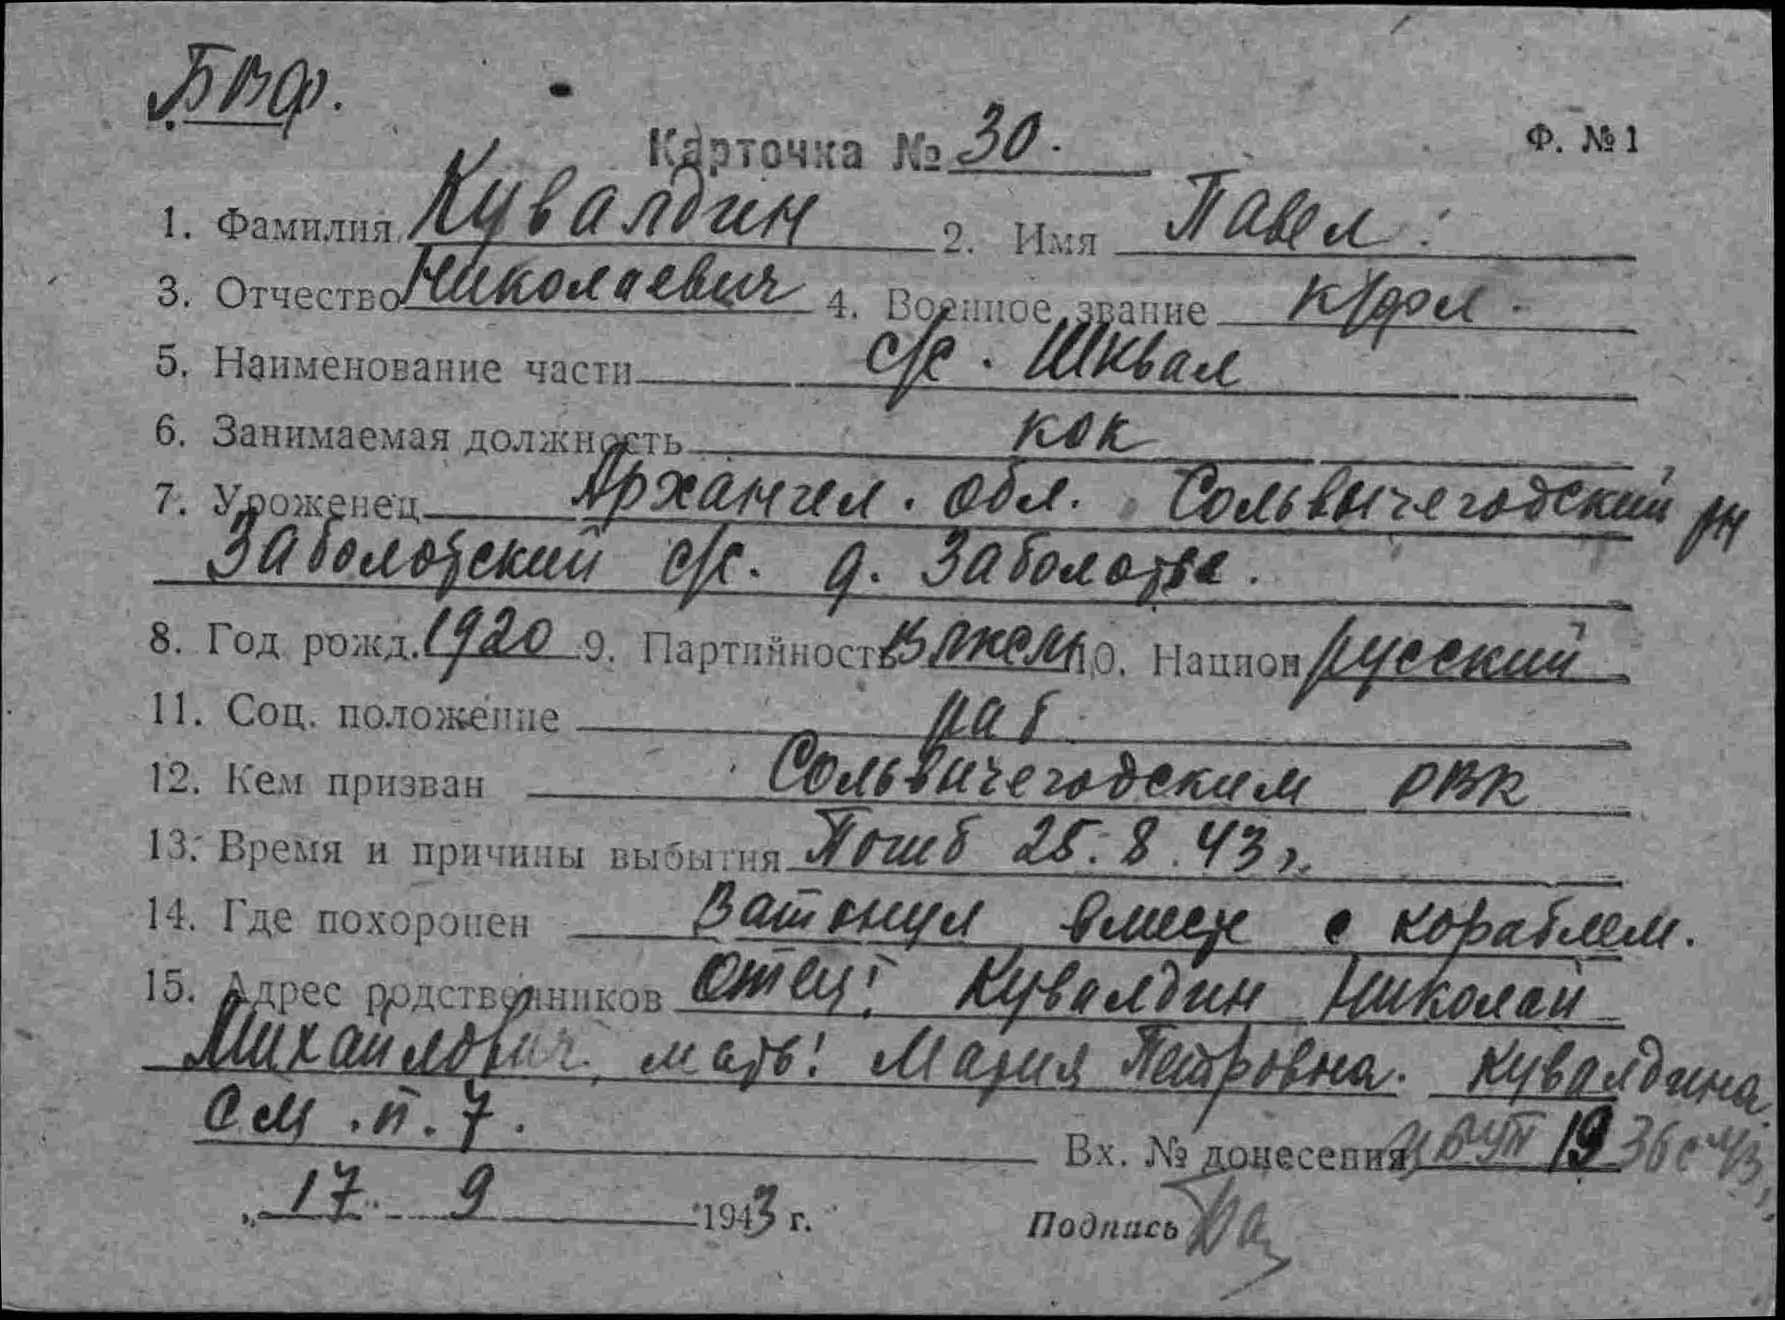 БВФ.
Карточка № 30.
Ф. № 1
1. Фамилия Кувалдин 2. Имя Павел.
3. Отчество Николаевич 4. Военное звание к/фл.
5. Наименование части с/к. Шквал
6. Занимаемая должность кок
7. Уроженец Архангел. обл. Сольвычегодский рн
Заболотский с/с. д. Заболотье.
8. Год рожд. 1920 9. Партийность Влксм 10. Национ русский
11. Соц. положение раб
12. Кем призван Сольвичегодским РВК
13. Время и причины выбытия Погиб 25.8.43 г.
14. Где похоронен Затонул вместе с кораблем.
15. Адрес родственников Отец: Кувалдин Николай
Михайлович, мать: Мария Петровна. Кувалдина
См. п. 7.
Вх. № донесения 19 36с 43
„ 17 " 9 1943 г.
Подпись